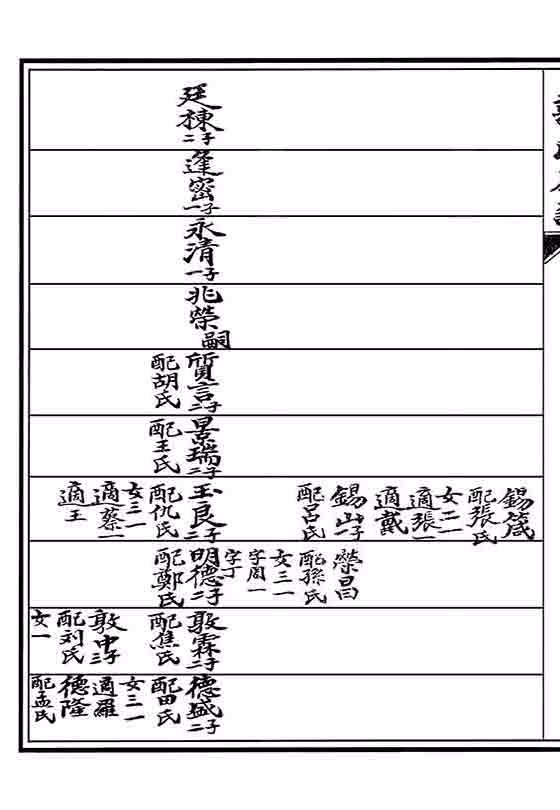 廷棟二子
逢密一子
永清一子
兆榮嗣
質言二子
配胡氏
景瑞二子
配王氏
錫箴
配張氏
女二一
適張一
適戴
錫山一子
配呂氏
玉良二子
配仇氏
女三一
適蔡一
適王
榮昌
配孫氏
女三一
字周一
字丁
明德二子
配鄭氏
敦霖二子
配焦氏
敦中三子
配刘氏
女一
德盛二子
配田氏
女三一
適羅
德隆
配孟氏